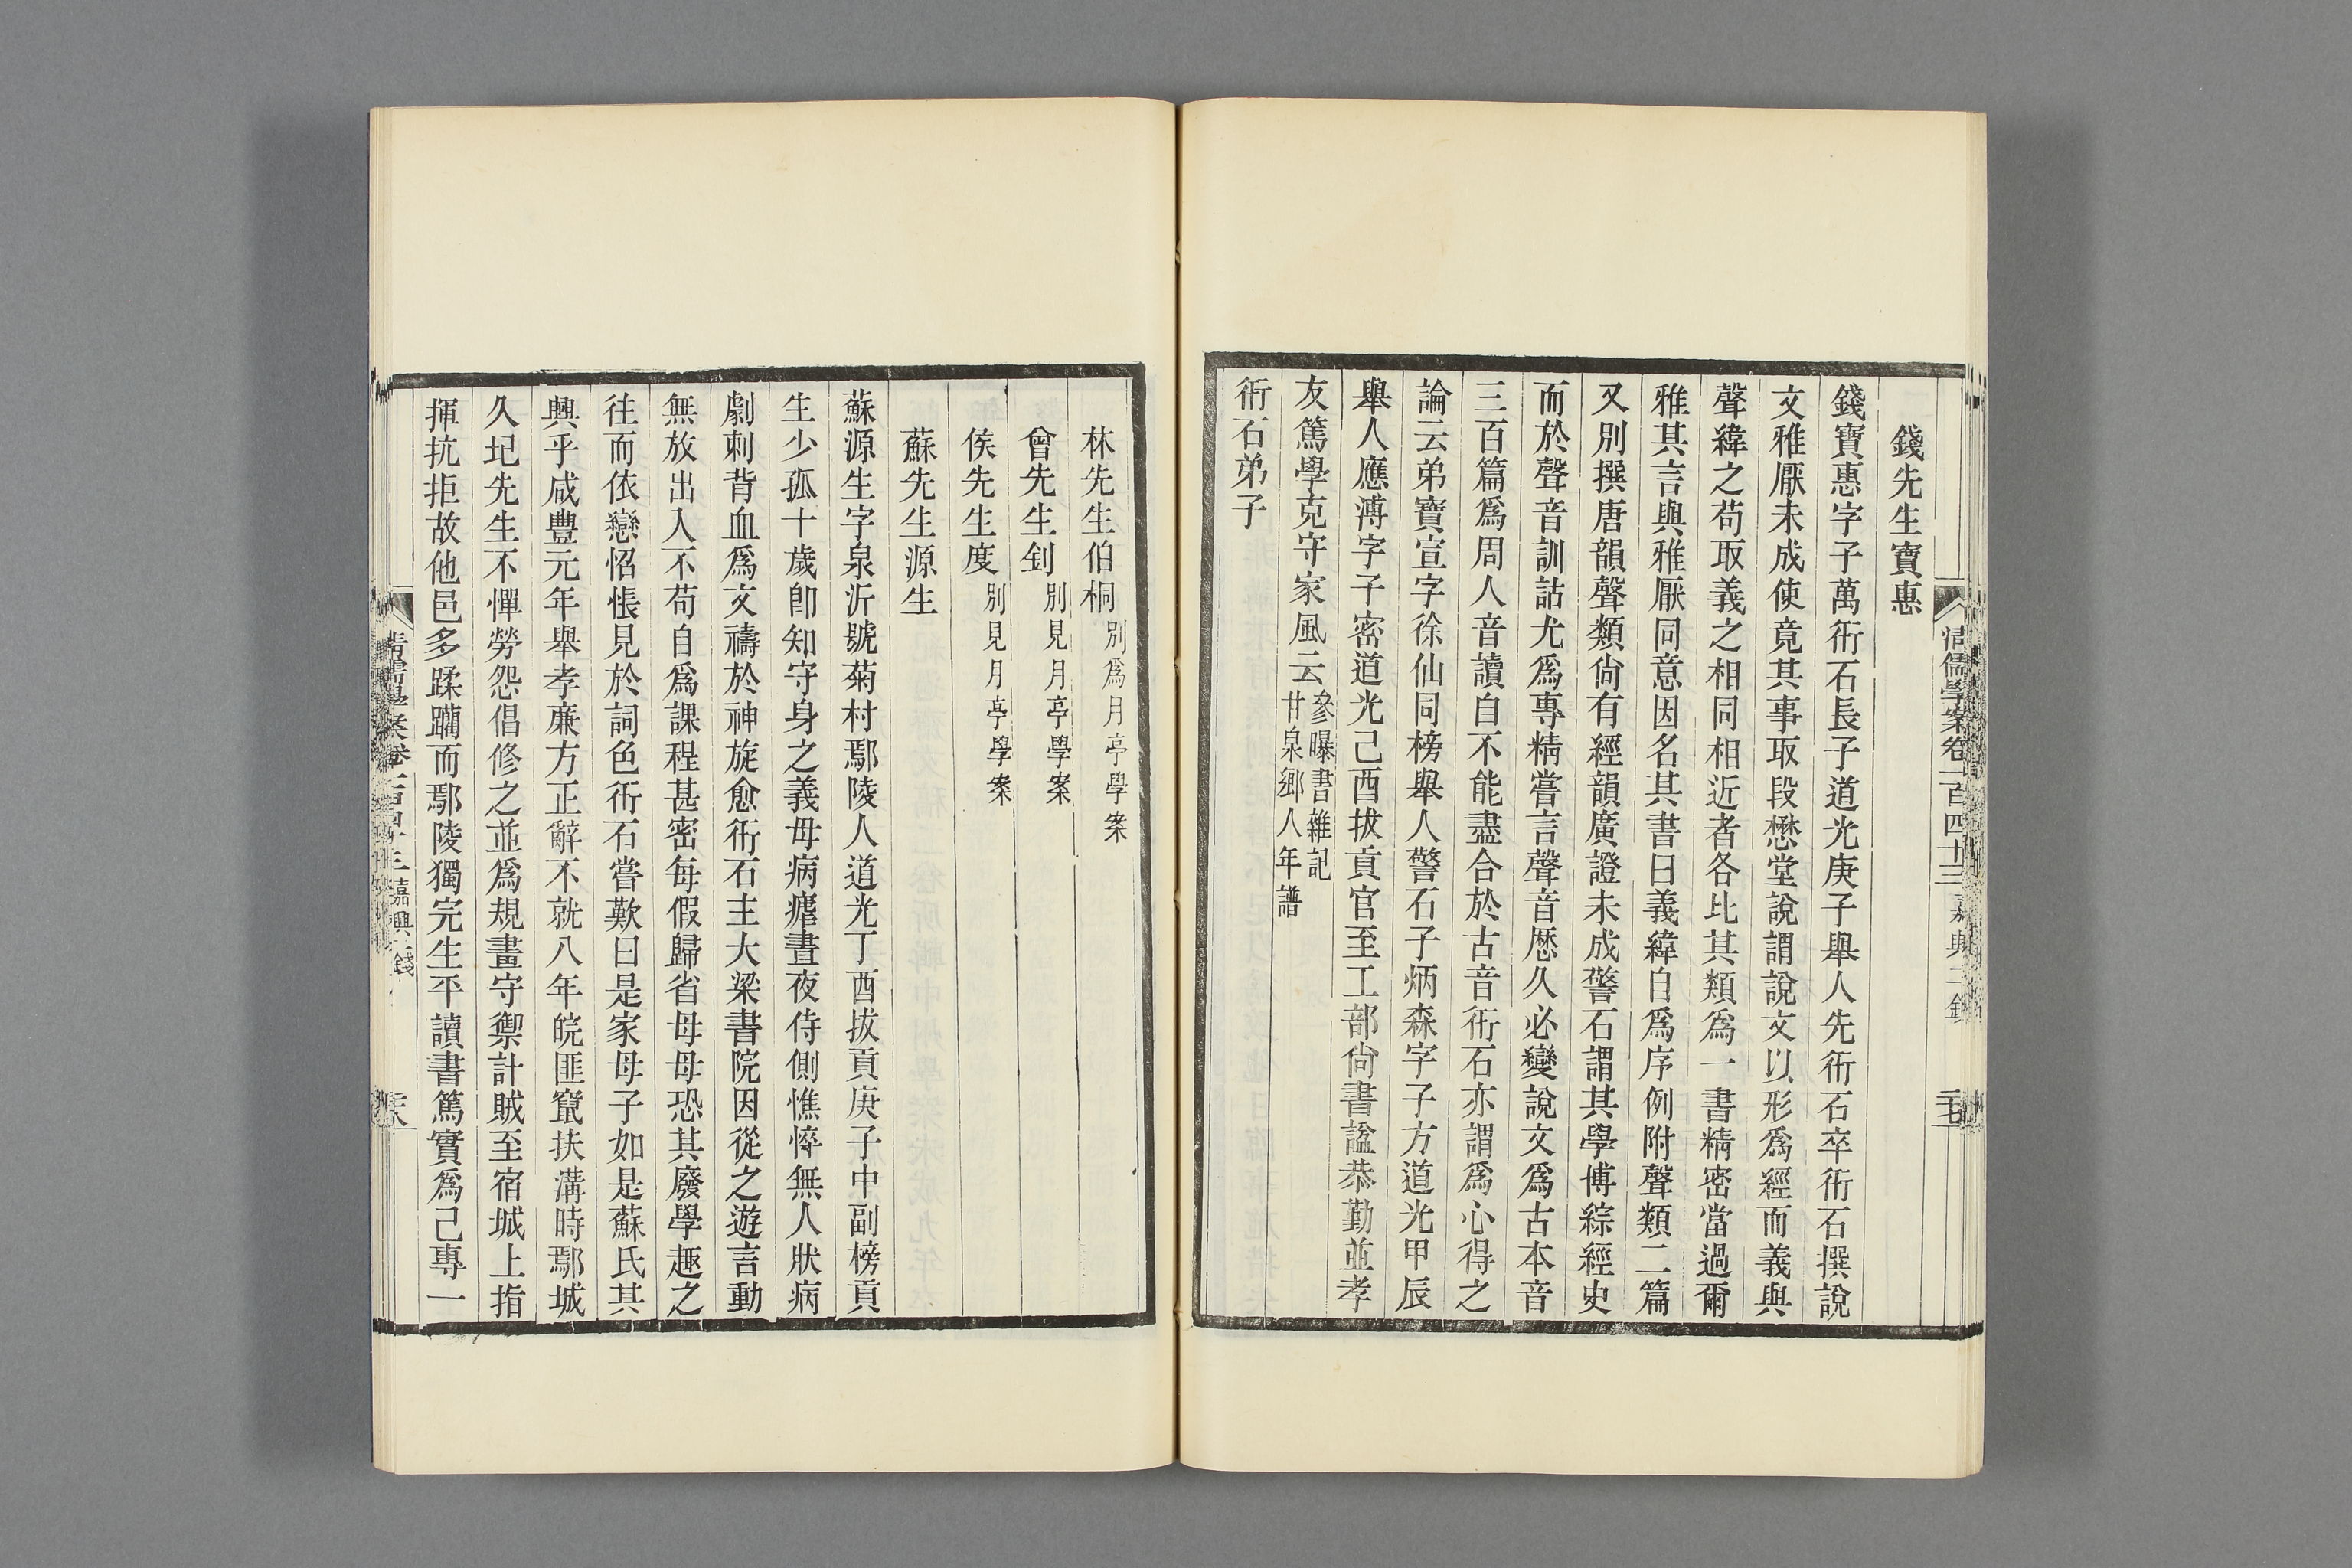 清儒學案卷一百四十三 嘉興二錢
錢先生寶惠
錢寶惠字子萬衎石長子道光庚子舉人先衎石卒衎石撰說
文雅厭未成使竟其事取段懋堂說謂說文以形爲經而義與
聲緯之苟取義之相同相近者各比其類爲一書精密當過爾
雅其言與雅厭同意因名其書曰義緯自爲序例附聲類二篇
又別撰唐韻聲類尙有經韻廣證未成警石謂其學博綜經史
而於聲音訓詁尤爲專精嘗言聲音歷久必變說文爲古本音
三百篇爲周人音讀自不能盡合於古音衎石亦謂爲心得之
論云弟寶宣字徐仙同榜舉人警石子炳森字子方道光甲辰
舉人應溥字子密道光己酉拔貢官至工部尙書諡恭勤並孝
友篤學克守家風云參曝書雜記
甘泉鄉人年譜
衎石弟子
林先生伯桐別爲月亭學案
曾先生釗別見月亭學案
侯先生度別見月亭學案
蘇先生源生
蘇源生字泉沂號菊村鄢陵人道光丁酉拔貢庚子中副榜貢
生少孤十歲卽知守身之義母病瘧晝夜侍側憔悴無人狀病
劇刺背血爲文禱於神旋愈衎石主大梁書院因從之遊言動
無放出入不苟自爲課程甚密每假歸省母母恐其廢學趣之
往而依戀惝悵見於詞色衎石嘗歎曰是家母子如是蘇氏其
興乎咸豐元年舉孝廉方正辭不就八年皖匪竄扶溝時鄢城
久圮先生不憚勞怨倡修之並爲規畫守禦計賊至宿城上指
揮抗拒故他邑多蹂躪而鄢陵獨完生平讀書篤實爲己專一
清儒學案卷一百四十三 嘉興二錢